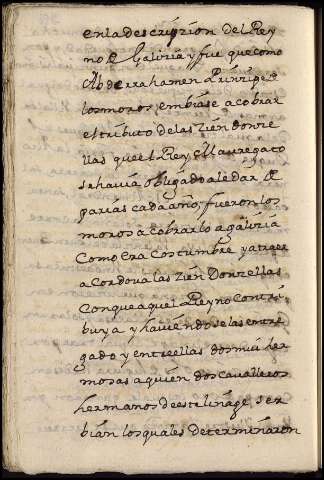 en la descripsion del Rey
no de Galisia y fue que como
Abderrahamen Prinsipe de
los moros, embiase a cobrar
el tributo de las zien donze
llas que el Rey Mauregato
se havia obligado a le dár de
parias cada año, fueron los
moros a cobrarlo a galisia
como era costumbre y a traer
a Cordova las zien Donzellas
con que aquel Reyno contri-
buya y haviendoselas entre
gado y entre ellas dos mui her
mosas a quien dos cavalleros
hermanos de este linage ser
bian los quales determinaron